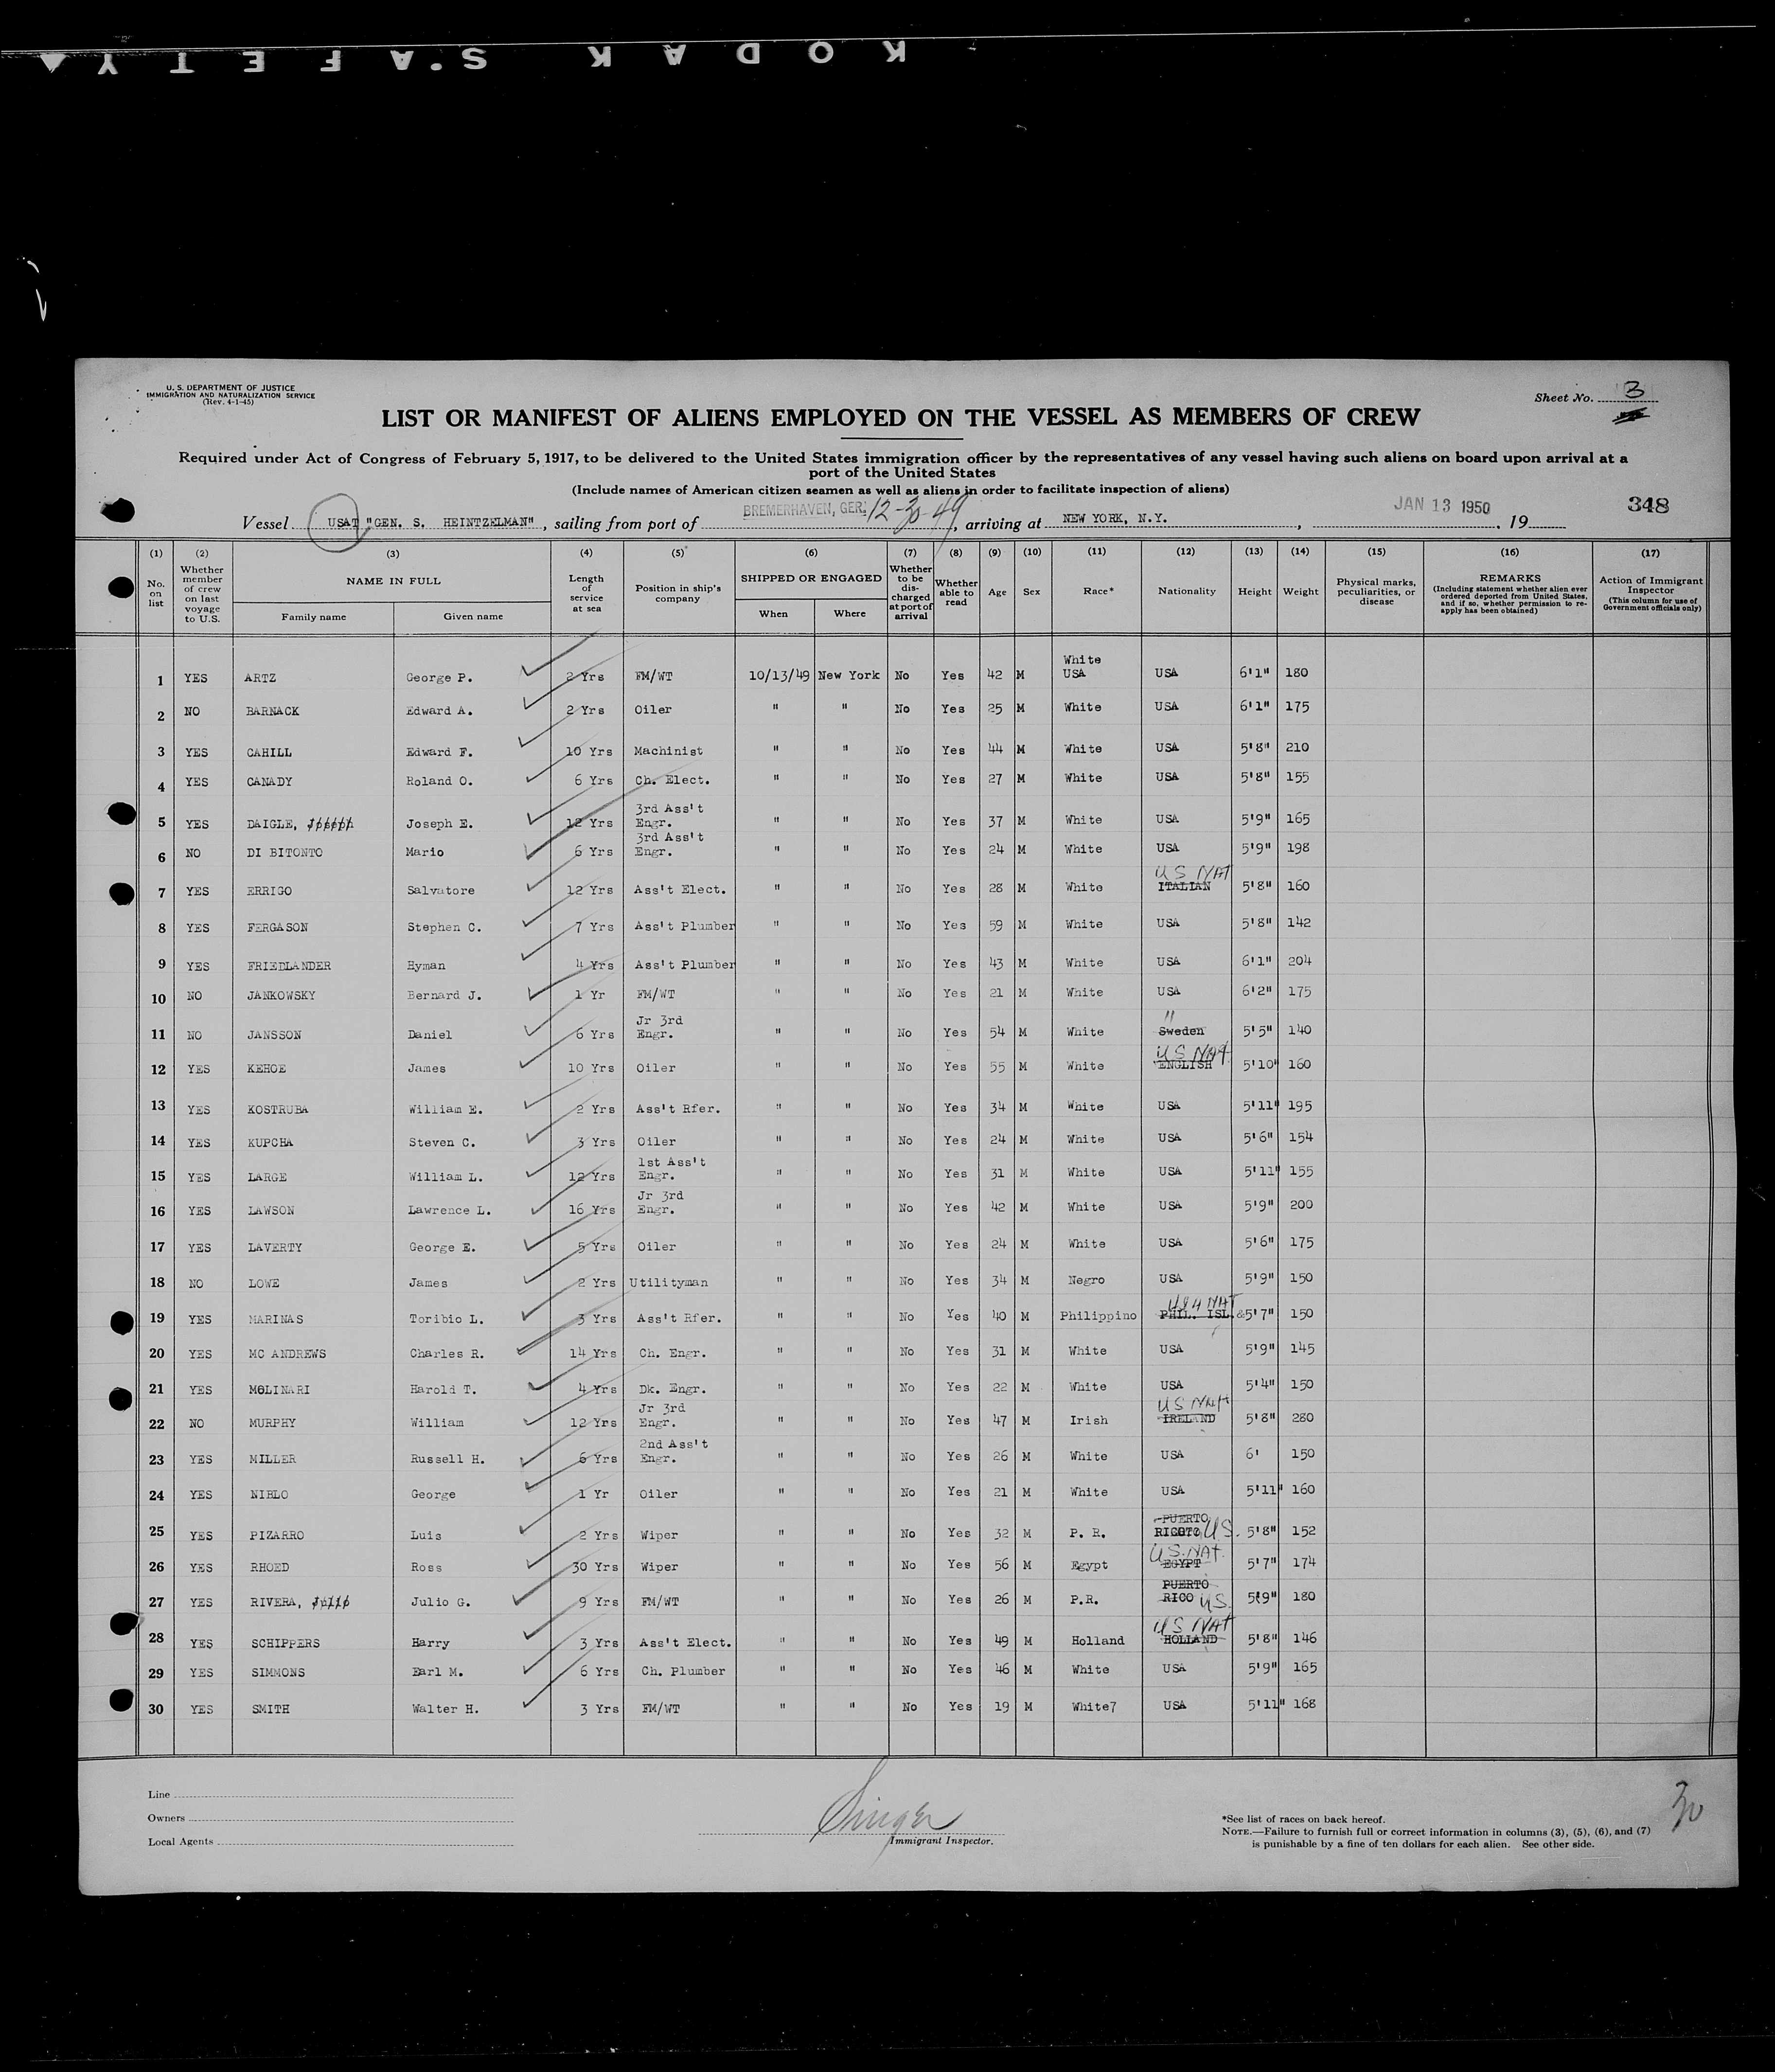 KODAK SAFETY
U. S. DEPARTMENT OF JUSTICE
IMMIGRATION AND NATURALIZATION SERVICE
(Rev. 4-1-45)
Sheet No. 3
LIST OR MANIFEST OF ALIENS EMPLOYED ON THE VESSEL AS MEMBERS OF CREW
Required under Act of Congress of February 5, 1917, to be delivered to the United States immigration officer by the representatives of any vessel having such aliens on board upon arrival at a
port of the United States
(Include names of American citizen seamen as well as aliens in order to facilitate inspection of aliens)
348
Vessel USAT "GEN. S. HEINTZELMAN", sailing from port of BREMERHAVEN, GER. 12-30-49, arriving at NEW YORK, N.Y., JAN 13 1950, 19
(1) (2) (3) (4) (5) (6) (7) (8) (9) (10) (11) (12) (13) (14) (15) (16) (17)
No. on list Whether member of crew on last voyage to U.S. NAME IN FULL Family name Given name Length of service at sea Position in ship's company SHIPPED OR ENGAGED When Where Whether to be discharged at port of arrival Whether able to read Age Sex Race* Nationality Height Weight Physical marks, peculiarities, or disease REMARKS (Including statement whether alien ever ordered deported from United States, and if so, whether permission to re-apply has been obtained) Action of Immigrant Inspector (This column for use of Government officials only)
1 YES ARTZ George P. 2 Yrs FM/WT 10/13/49 New York No Yes 42 M White USA USA 6'1" 180
2 NO BARNACK Edward A. 2 Yrs Oiler " " No Yes 25 M White USA 6'1" 175
3 YES CAHILL Edward F. 10 Yrs Machinist " " No Yes 44 M White USA 5'8" 210
4 YES CANADY Roland O. 6 Yrs Ch. Elect. " " No Yes 27 M White USA 5'8" 155
5 YES DAIGLE, Joseph Joseph E. 12 Yrs 3rd Ass't Engr. " " No Yes 37 M White USA 5'9" 165
6 NO DI BITONTO Mario 6 Yrs 3rd Ass't Engr. " " No Yes 24 M White USA 5'9" 198
7 YES ERRIGO Salvatore 12 Yrs Ass't Elect. " " No Yes 28 M White US NAT ITALIAN 5'8" 160
8 YES FERGASON Stephen C. 7 Yrs Ass't Plumber " " No Yes 59 M White USA 5'8" 142
9 YES FRIEDLANDER Hyman 4 Yrs Ass't Plumber " " No Yes 43 M White USA 6'1" 204
10 NO JANKOWSKY Bernard J. 1 Yr FM/WT " " No Yes 21 M White USA 6'2" 175
11 NO JANSSON Daniel 6 Yrs Jr 3rd Engr. " " No Yes 54 M White " Sweden 5'5" 140
12 YES KEHOE James 10 Yrs Oiler " " No Yes 55 M White US NAT. ENGLISH 5'10" 160
13 YES KOSTRUBA William E. 2 Yrs Ass't Rfer. " " No Yes 34 M White USA 5'11" 195
14 YES KUPCHA Steven C. 3 Yrs Oiler " " No Yes 24 M White USA 5'6" 154
15 YES LARGE William L. 12 Yrs 1st Ass't Engr. " " No Yes 31 M White USA 5'11" 155
16 YES LAWSON Lawrence L. 16 Yrs Jr 3rd Engr. " " No Yes 42 M White USA 5'9" 200
17 YES LAVERTY George E. 5 Yrs Oiler " " No Yes 24 M White USA 5'6" 175
18 NO LOWE James 2 Yrs Utilityman " " No Yes 34 M Negro USA 5'9" 150
19 YES MARINAS Toribio L. 3 Yrs Ass't Rfer. " " No Yes 40 M Philippino NAT PHIL. ISL. &5'7" 150
20 YES MC ANDREWS Charles R. 14 Yrs Ch. Engr. " " No Yes 31 M White USA 5'9" 145
21 YES MOLINARI Harold T. 4 Yrs Dk. Engr. " " No Yes 22 M White USA 5'4" 150
22 NO MURPHY William 12 Yrs Jr 3rd Engr. " " No Yes 47 M Irish US NAT IRELAND 5'8" 280
23 YES MILLER Russell H. 6 Yrs 2nd Ass't Engr. " " No Yes 26 M White USA 6' 150
24 YES NIBLO George 1 Yr Oiler " " No Yes 21 M White USA 5'11" 160
25 YES PIZARRO Luis 2 Yrs Wiper " " No Yes 32 M P. R. PUERTO U.S. 5'8" 152
26 YES RHOED Ross 30 Yrs Wiper " " No Yes 56 M Egypt U.S. NAT. EGYPT 5'7" 174
27 YES RIVERA, Julio Julio G. 9 Yrs FM/WT " " No Yes 26 M P.R. PUERTO RICO U.S. 5'9" 180
28 YES SCHIPPERS Harry 3 Yrs Ass't Elect. " " No Yes 49 M Holland US NAT HOLLAND 5'8" 146
29 YES SIMMONS Earl M. 6 Yrs Ch. Plumber " " No Yes 46 M White USA 5'9" 165
30 YES SMITH Walter H. 3 Yrs FM/WT " " No Yes 19 M White7 USA 5'11" 168
Line
Owners
Local Agents
Singer
Immigrant Inspector.
*See list of races on back hereof.
NOTE.—Failure to furnish full or correct information in columns (3), (5), (6), and (7)
is punishable by a fine of ten dollars for each alien. See other side.
30